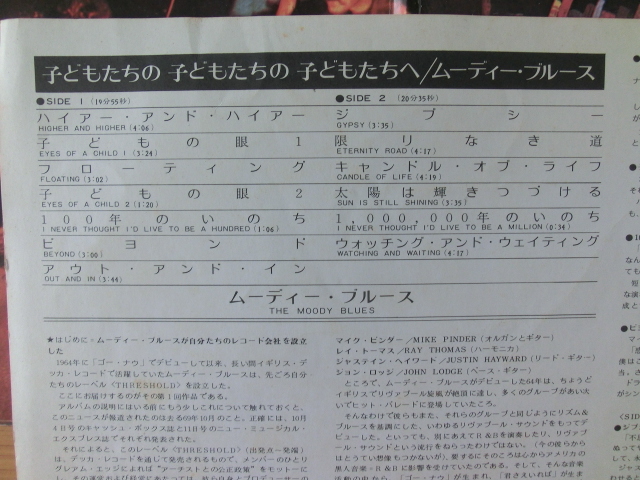 子どもたちの 子どもたちの 子どもたちへ/ムーディー・ブルース
●SIDE 1 (19分55秒)
ハイアー・アンド・ハイアー
HIGHER AND HIGHER (4:06)
子どもの眼 1
EYES OF A CHILD 1 (3:24)
フローティング
FLOATING (3:02)
子どもの眼 2
EYES OF A CHILD 2 (1:20)
100年のいのち
I NEVER THOUGHT I'D LIVE TO BE A HUNDRED (1:06)
ビヨンド
BEYOND (3:00)
アウト・アンド・イン
OUT AND IN (3:44)
●SIDE 2 (20分35秒)
ジプシー
GYPSY (3:35)
限りなき道
ETERNITY ROAD (4:17)
キャンドル・オブ・ライフ
CANDLE OF LIFE (4:19)
太陽は輝きつづける
SUN IS STILL SHINING (3:35)
1,000,000年のいのち
I NEVER THOUGHT I'D LIVE TO BE A MILLION (0:34)
ウォッチング・アンド・ウェイティング
WATCHING AND WAITING (4:17)
ムーディー・ブルース
THE MOODY BLUES
★はじめに・ムーディー・ブルースが自分たちのレコード会社を設立
した
1964年に「ゴー・ナウ」でデビューして以来、長い間イギリス・デ
ッカ・レコードで活躍していたムーディー・ブルースは、先ごろ自分
たちのレーベル《THRESHOLD》を設立した。
ここにお届けするのがその第1回作品である。
アルバムの説明にはいる前にもう少しこれについて触れておくと、
このニュースが報道されたのは去る69年10月のこと。正確には、10月
4日号のキャッシュ・ボックス誌と11日号のニュー・ミュージカル・
エクスプレス誌でそれぞれ発表された。
それによると、このレーベル《THRESHOLD》(出発点一発端)
は、デッカ・レコードを通じて発売されるもので、メンバーのひとり
グレアム・エッジによれば"アーチストとの公正政策"をモットーに
マイク・ピンダー/MIKE PINDER (オルガンとギター)
レイ・トーマス/RAY THOMAS (ハーモニカ)
ジャスティン・ヘイワード/JUSTIN HAYWARD (リード・ギター)
ジョン・ロッジ/JOHN LODGE (ベース・ギター)
ところで、ムーディー・ブルースがデビューした64年は、ちょうど
イギリスでリヴァプール旋風が絶頂に達し、多くのグループがあい次
いでヒット・パレードに登場していたころ。
そんなわけで彼らもまた、それらのグループと同じようにリズム&
ブルースを基調にした、いわゆるリヴァプール・サウンドをもってデ
ビューした。といっても、別にあえてR&Bを演奏したり、リヴァプ
ール・サウンドという流行をねらったわけではない。(今の彼らから
はとうてい想像もつかないが)、要するにそのころは心からアメリカの
黒人音楽・R&Bに影響を受けていたのである。そして、そんな音楽